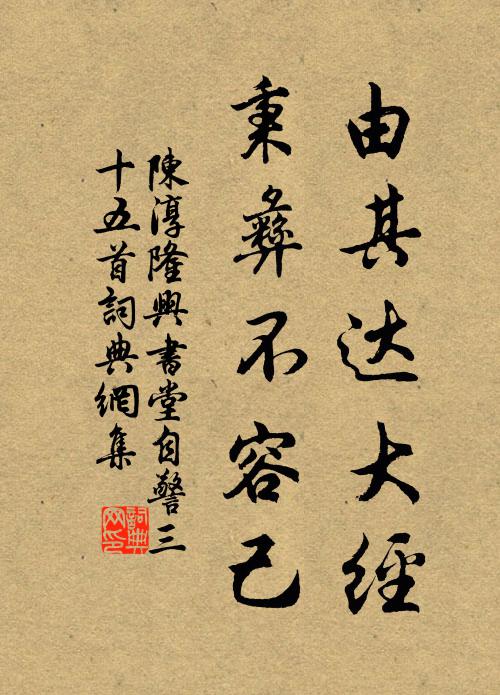 由其达大經
秉彝不容己
陳淳隆興書堂自警三
十五首詞典網集
詞典
网印